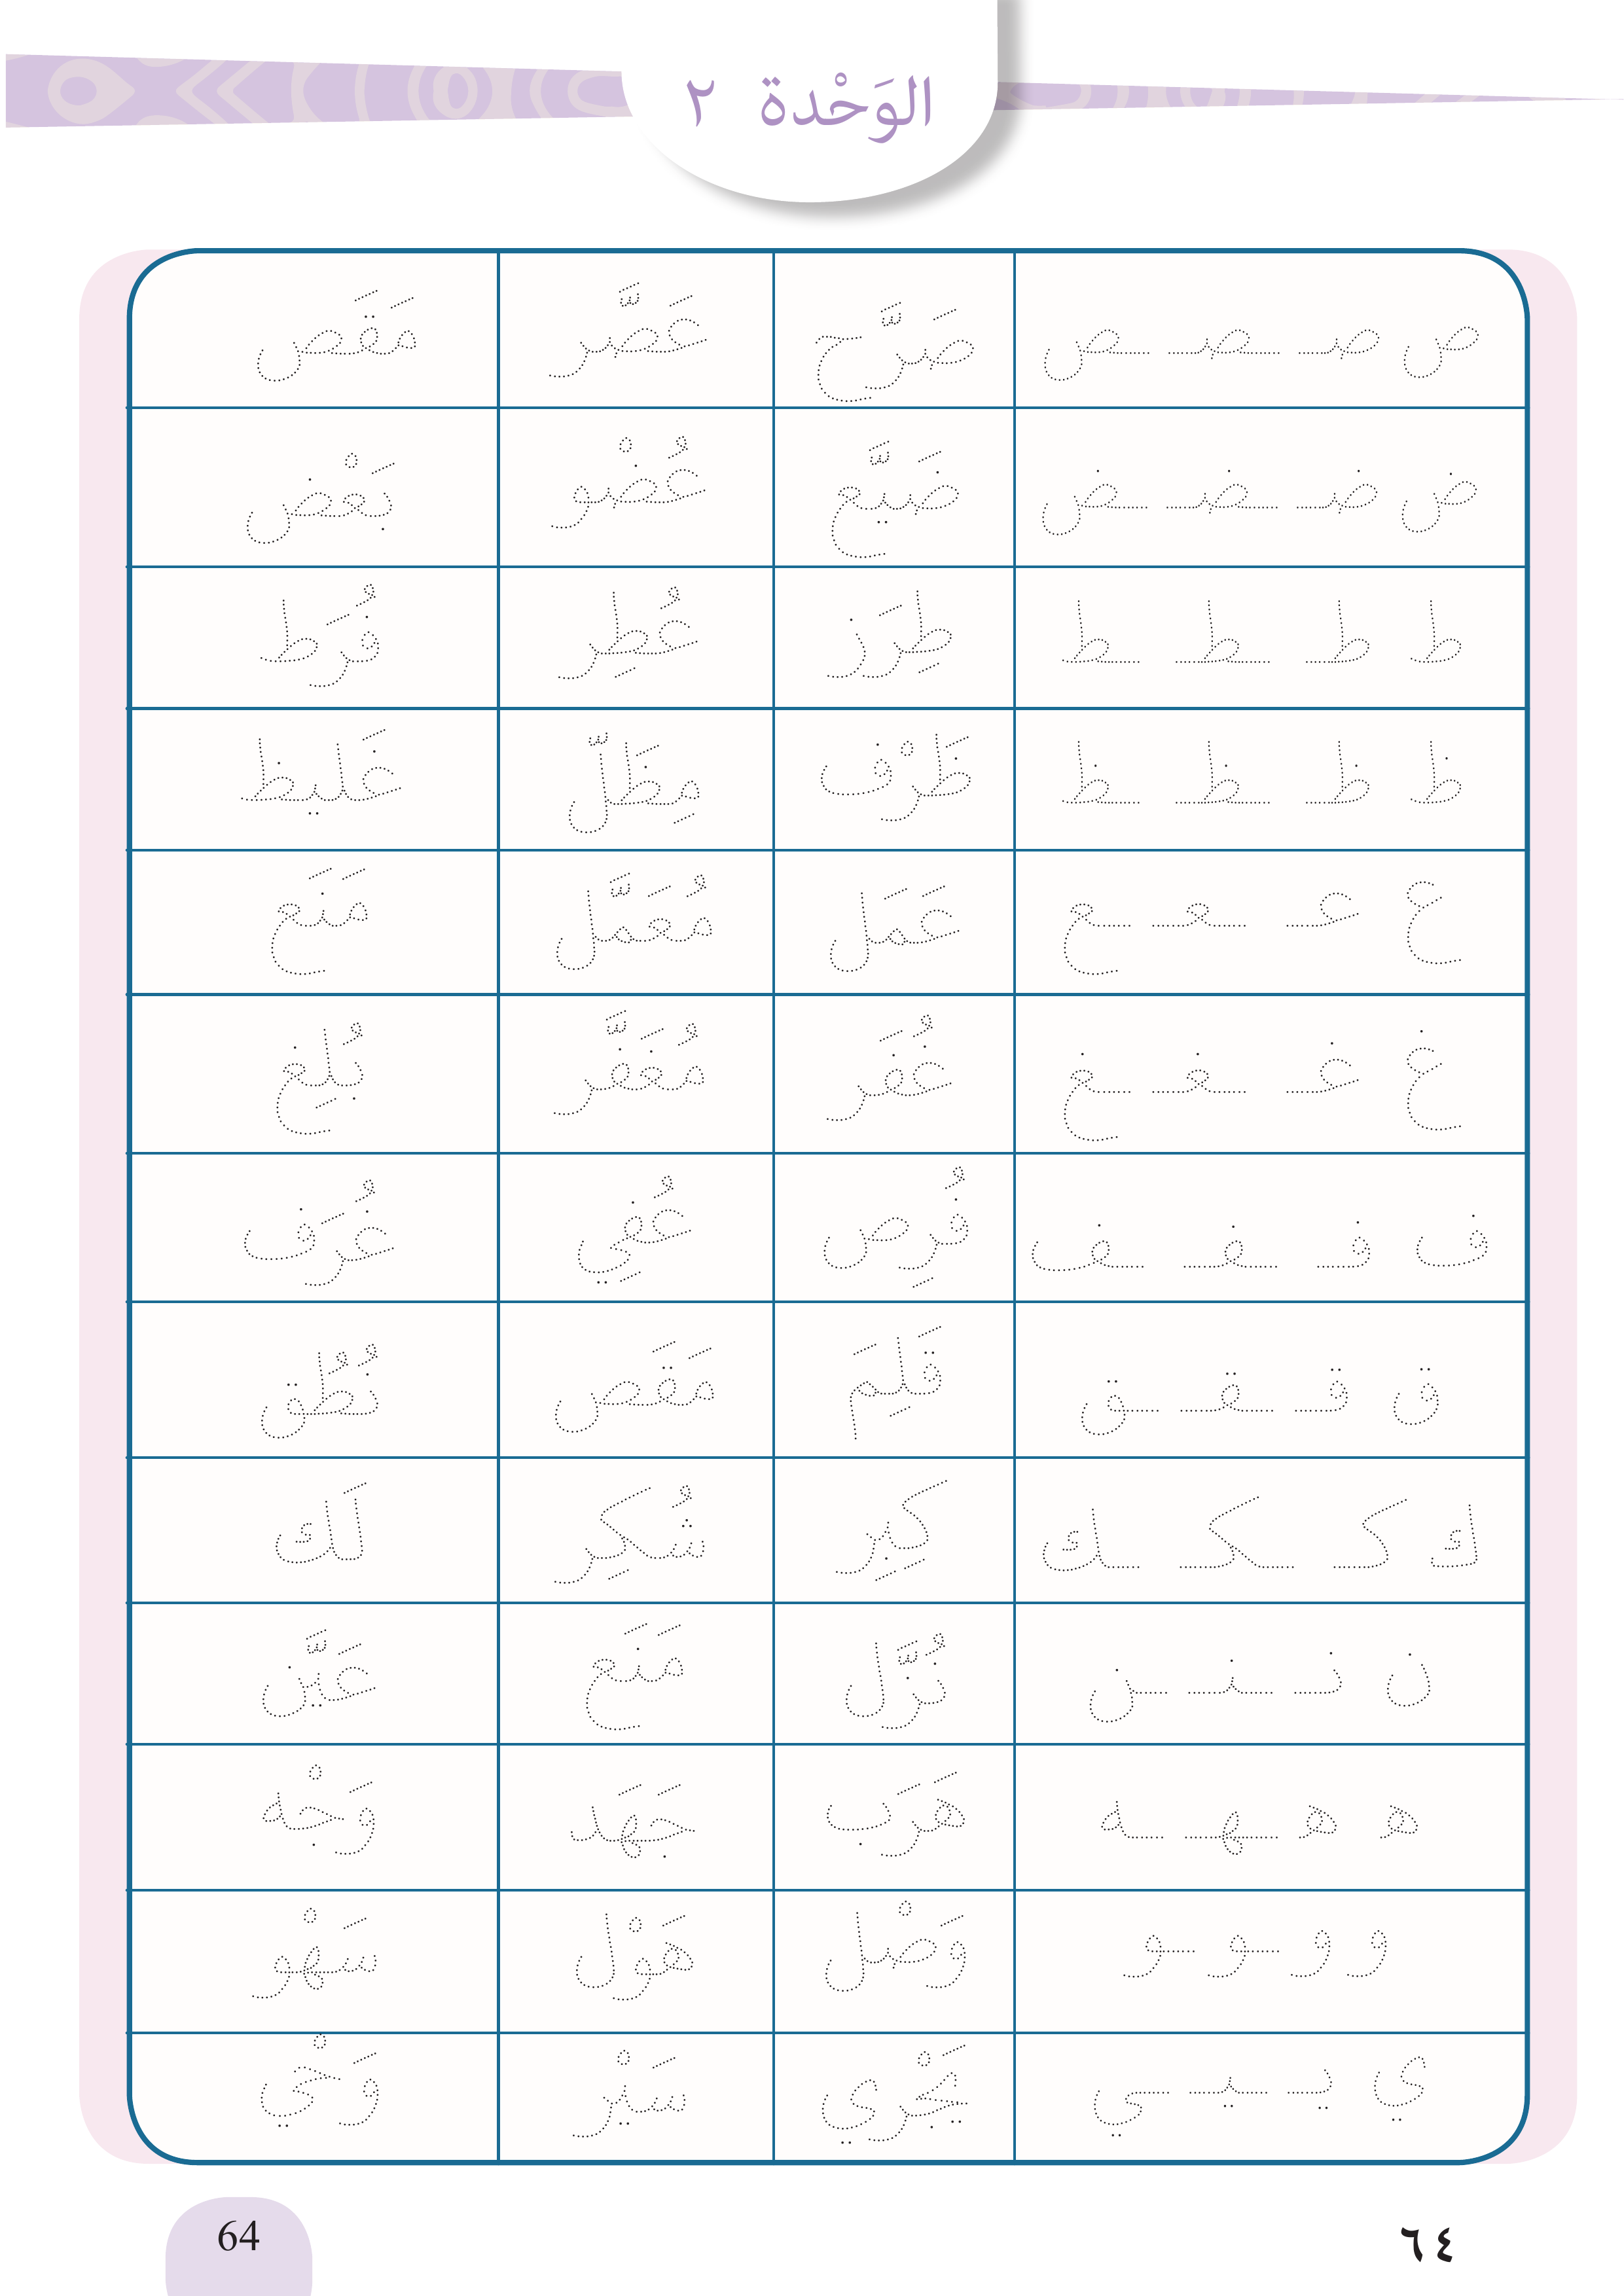 الوَحْدة ٢
ص صـ ـصـ ـص صَرَّح عَصَّر مَقَص
ض ضـ ـضـ ـض ضَيَّع عُضْو بَعْض
ط ط ـط ـط طِرَز عُطِر فُرَط
ظ ظ ـظ ـظ ظَرْف مِظَلّ غَليظ
ع عـ ـعـ ـع عَمَل مُعَمَّل مَنَع
غ غـ ـغـ ـغ غُفَر مُغَفَّر بُلِغ
ف فـ ـفـ ـف فُرِص عُفِي غُرَف
ق قـ ـقـ ـق قَلِمَ مَقَص نُطُق
ك كـ ـكـ ـك كِبِر شُكِر لَك
ن نـ ـنـ ـن نُزَّل مَنَع عَيَّن
ه هـ ـهـ ـه هَرَب جَهَد وَجْه
و و ـو ـو وَصْل هَوْل سَهْو
ي يـ ـيـ ـي يَجْري سَيْر وَحْي
64 ٦٤